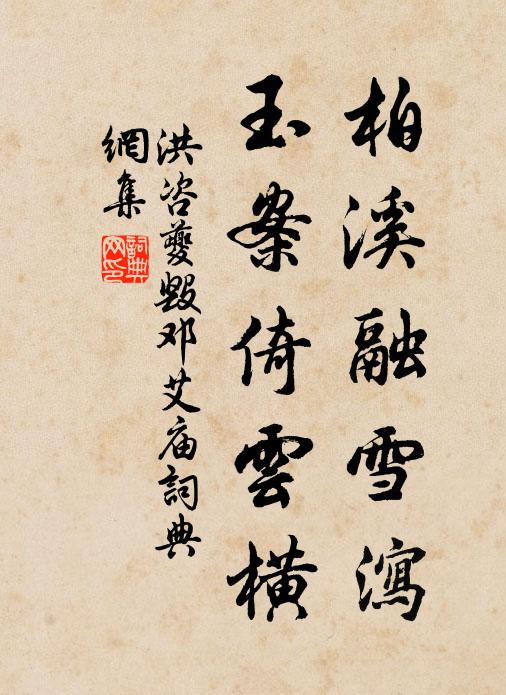 柏溪融雪瀉
玉案倚雲橫
洪咨夔毀邓艾庙詞典
網集
詞典
网印